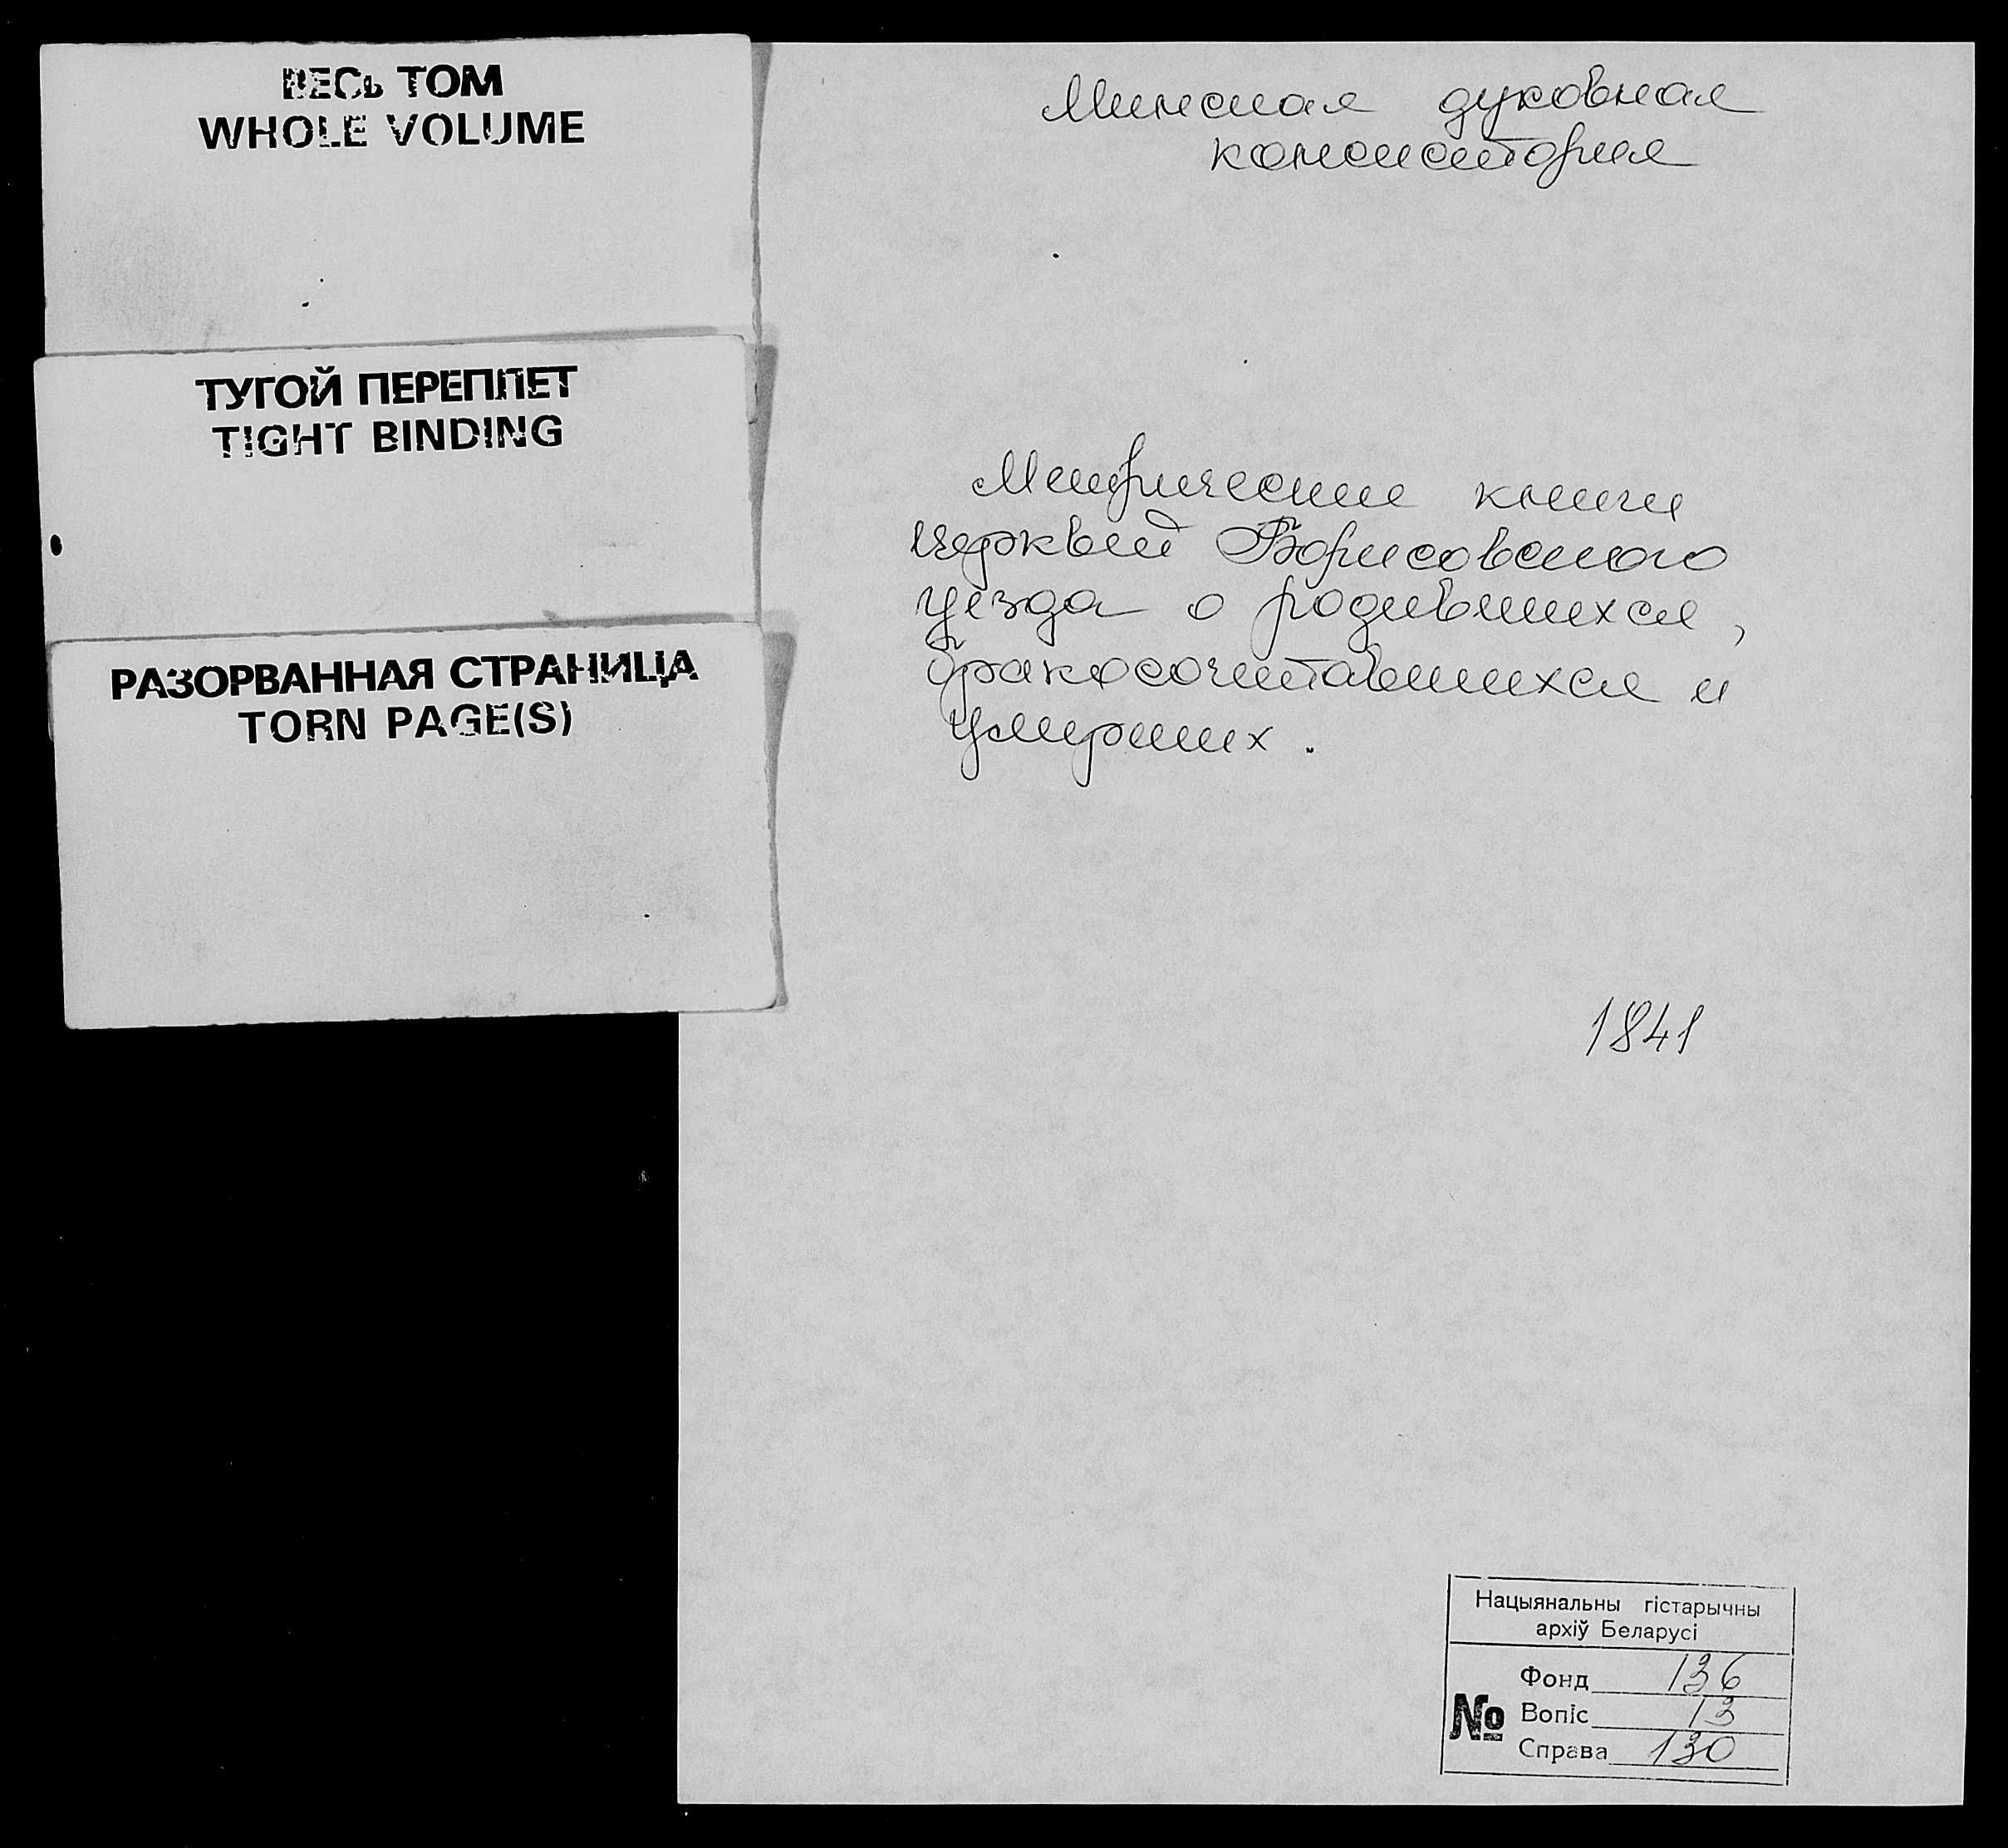 ВЕСЬ ТОМ
WHOLE VOLUME
ТУГОЙ ПЕРЕПЛЕТ
TIGHT BINDING
РАЗОРВАННАЯ СТРАНИЦА
TORN PAGE(S)
Минская духовная
консистория
Метрические книги
церквей Борисовского
уезда о родившихся,
бракосочетавшихся и
умерших.
1841
Нацыянальны гістарычны
архіў Беларусі
Фонд 136
№ Вопіс 13
Справа 130